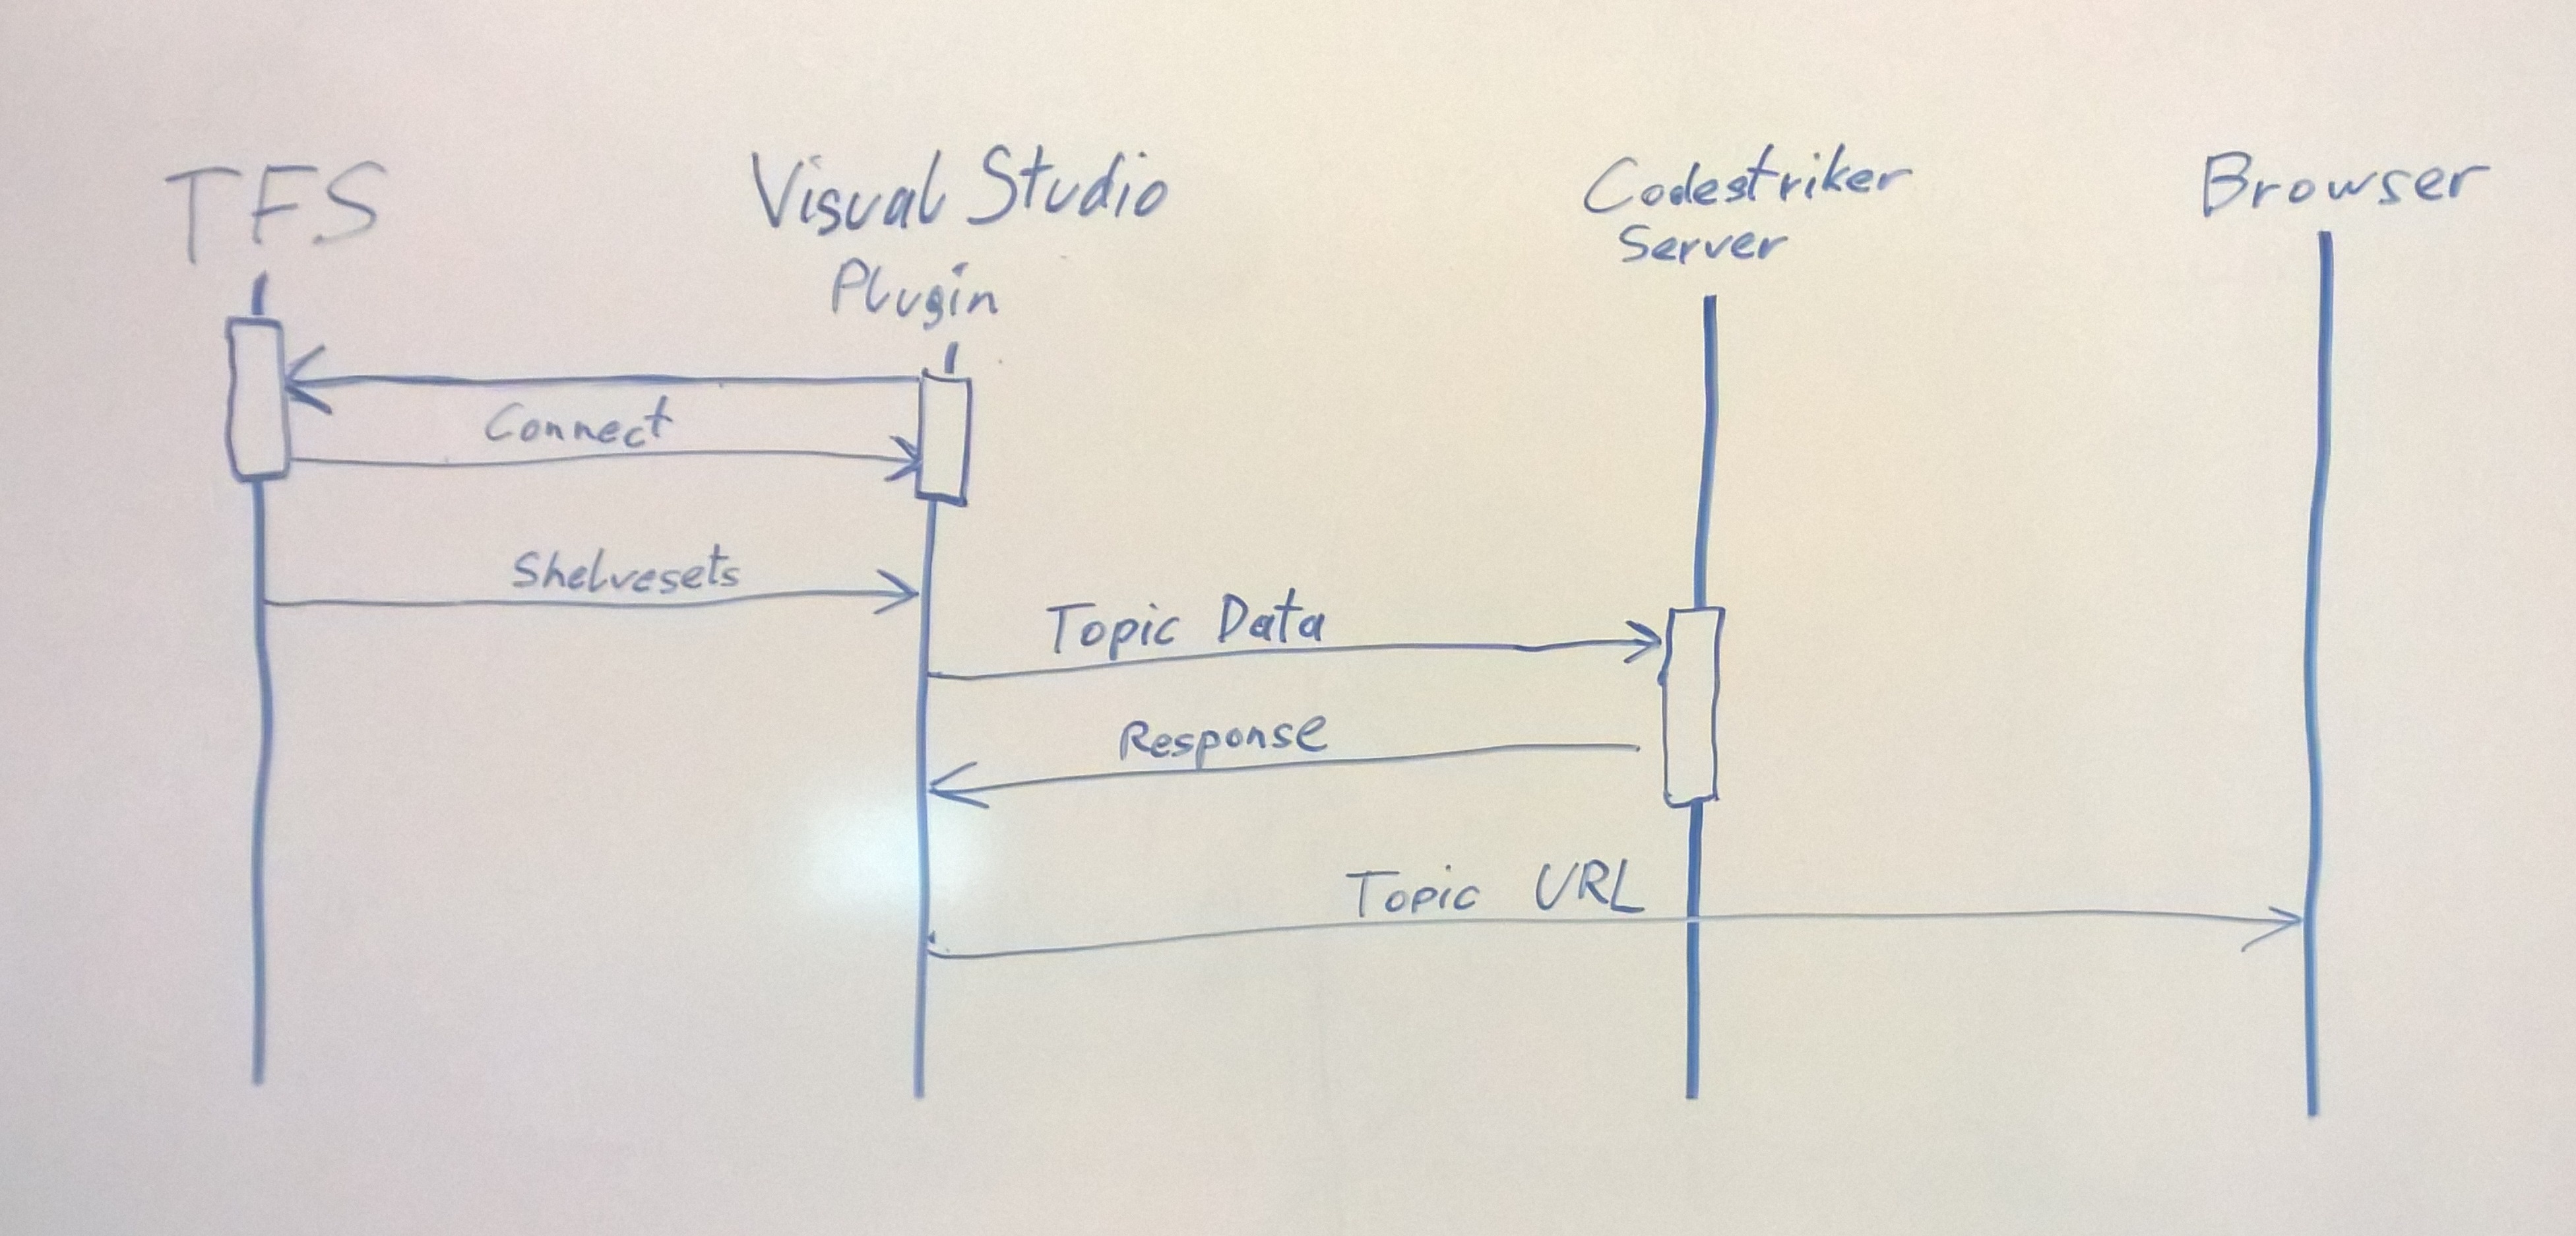 TFS
Visual Studio
Plugin
Codestriker
Server
Browser
Connect
Shelvesets
Topic Data
Response
Topic URL